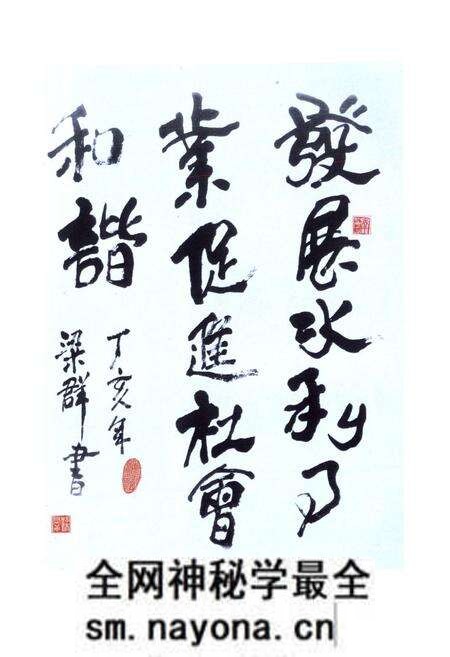 發展水利事
業促進社會
和諧
丁亥年
梁群書
全网神秘学最全
sm.nayona.cn